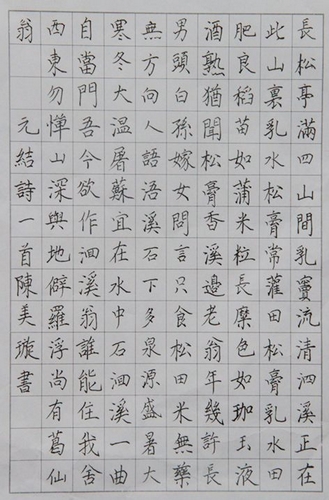 長松亭滿四山間乳竇流清泗溪正在
此山裏乳水松膏常灌田松膏乳水田
肥良稻苗如蒲米粒長糜色如珈玉液
酒熟猶聞松膏香溪邊老翁年幾許長
男頭白孫嫁女問言只食松田米無藥
無方向人語浯溪石下多泉源盛暑大
寒冬大溫屠蘇宜在水中石洄溪一曲
自當門吾今欲作洄溪翁誰能住我舍
西東勿憚山深與地僻羅浮尚有葛仙
翁 元結詩一首陳美璇書